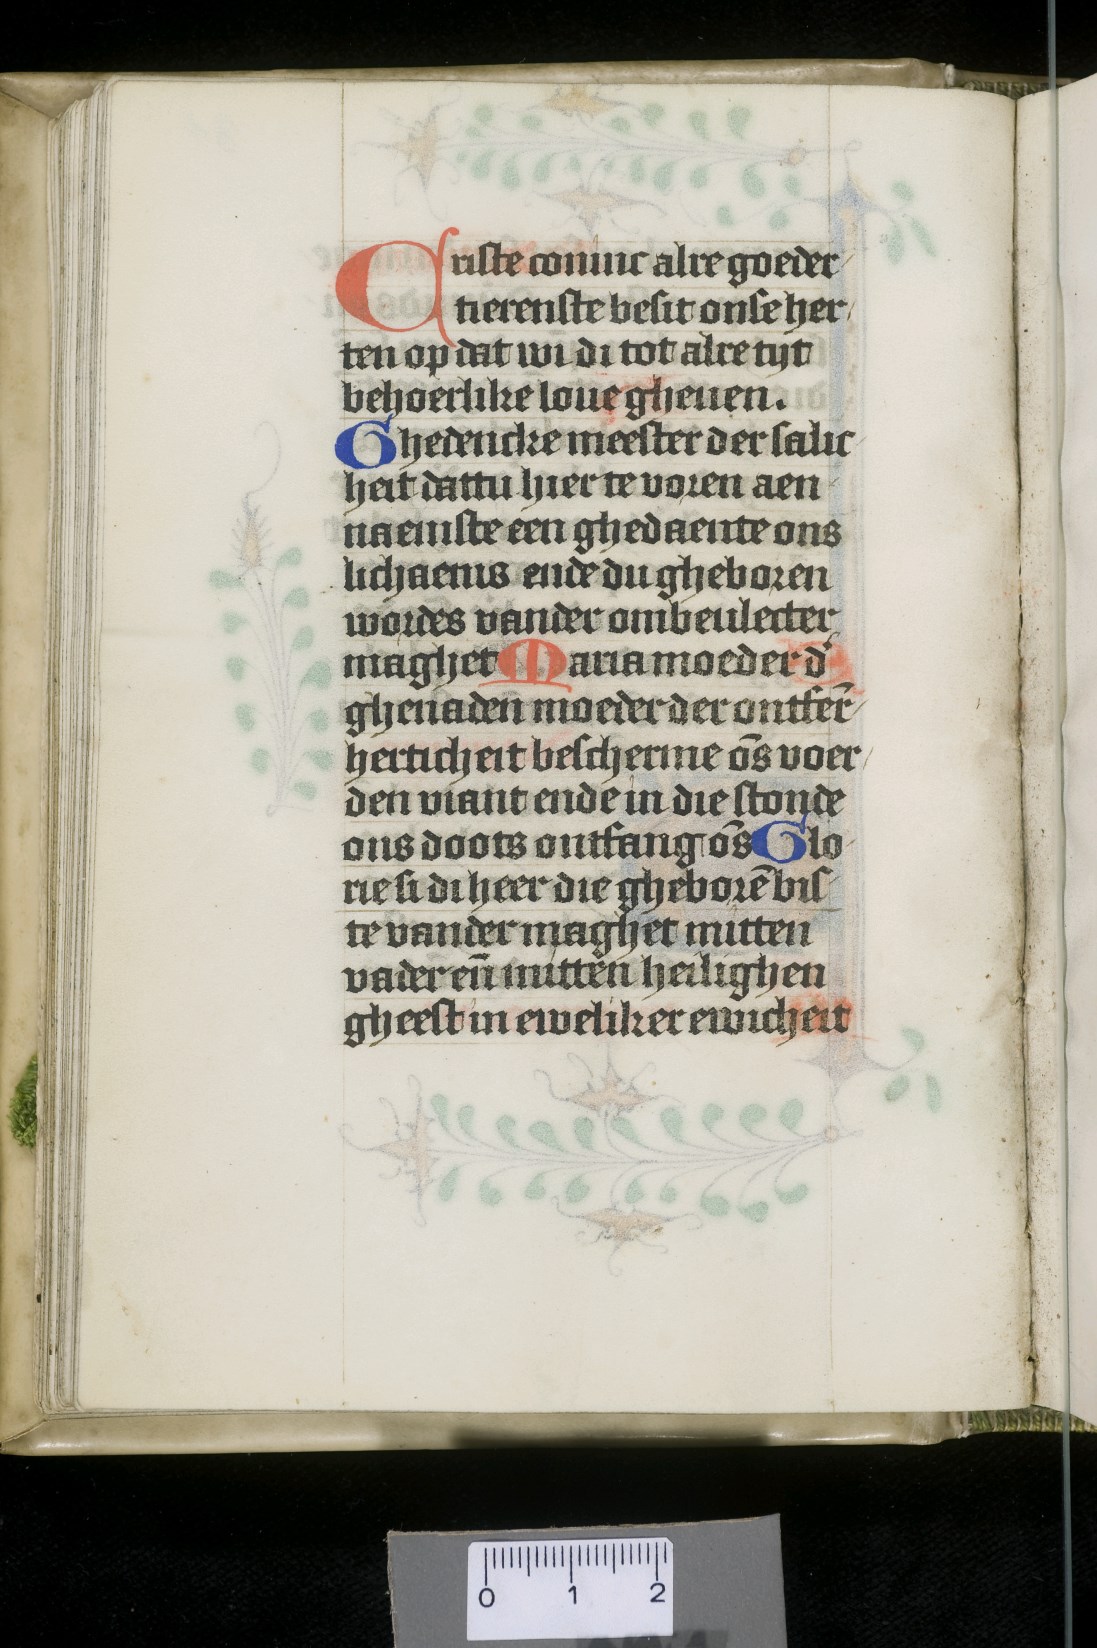 Criste coninc alre goeder
tierenste besit onse her
ten op dat wi di tot alre tijt
behoerlike loue gheuen.
Ghedencke meester der salic
heit dattu hier te voren aen
naemste een ghedaente ons
lichaems ende du gheboren
wordes vander ombeulecter
maghet Maria moeder d'
ghenaden moeder der ontfer̄
herticheit bescherme ōs voer
den viant ende in die stonde
ons doots ontfang ōs Glo
rie si di heer die gheborē bis
te vander maghet mitten
vader en̄ mitten heilighen
gheest in eweliker ewicheit
0 1 2